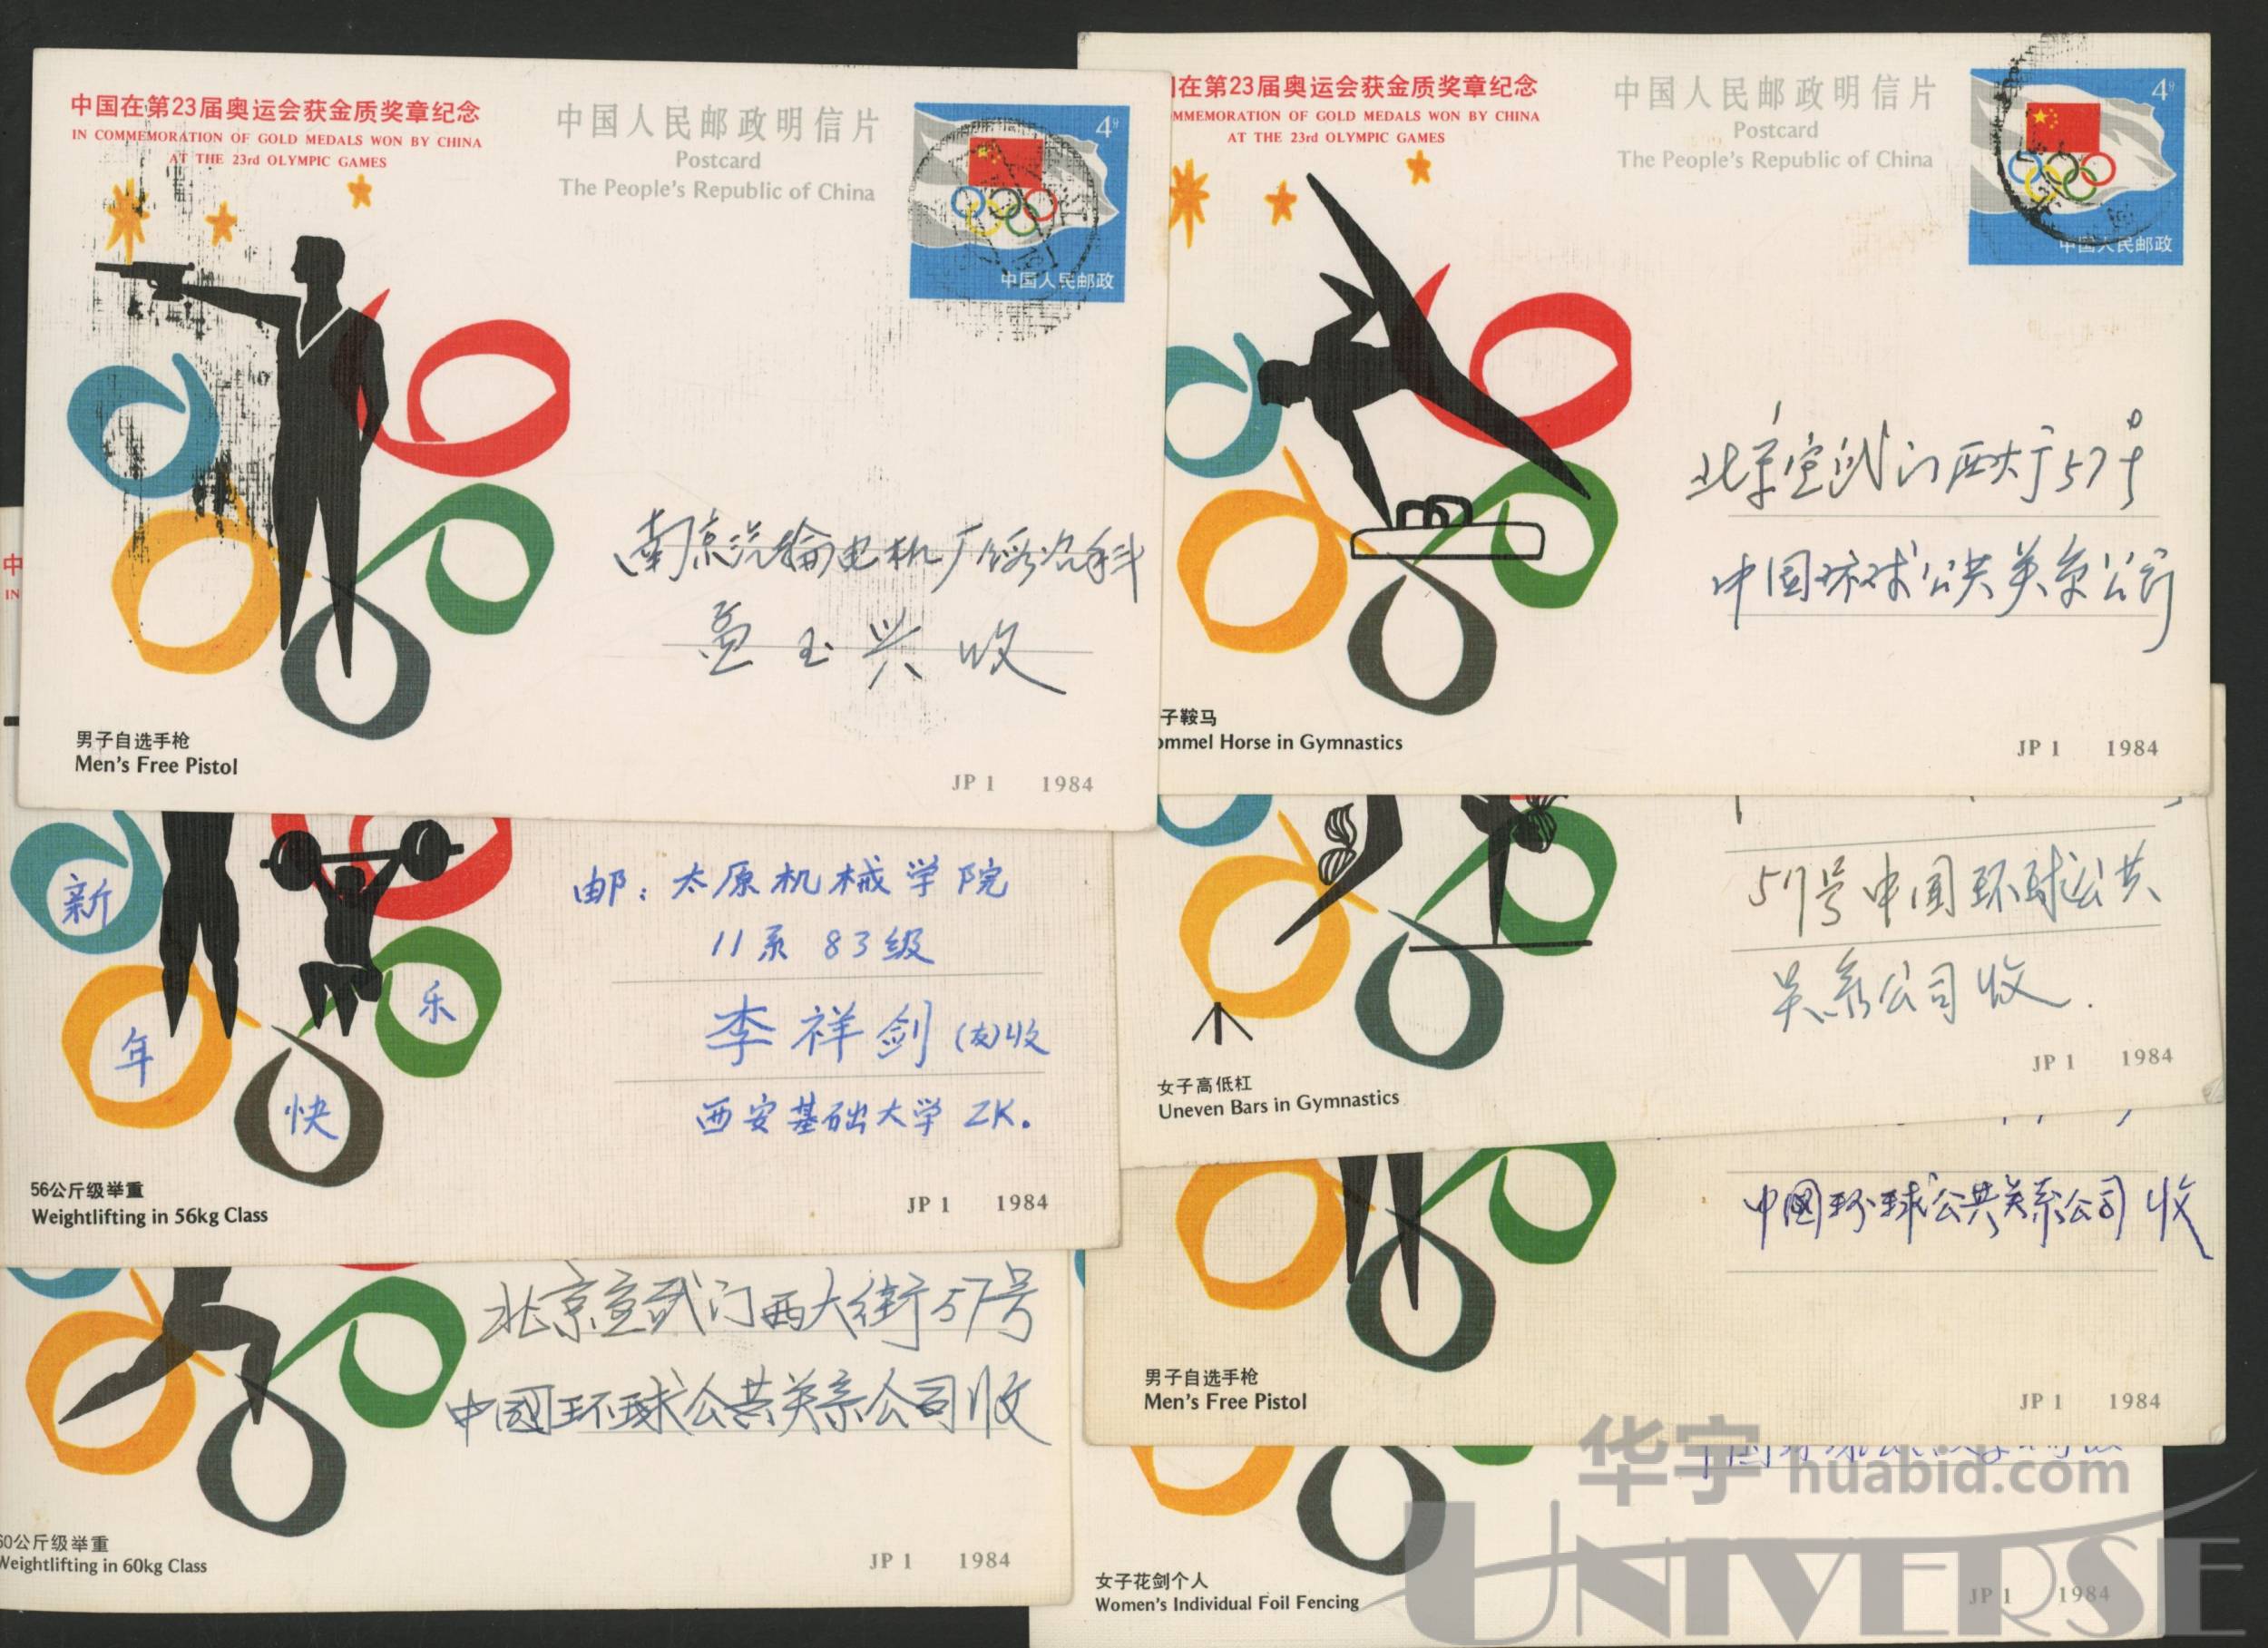 中国在第23届奥运会获金质奖章纪念
IN COMMEMORATION OF GOLD MEDALS WON BY CHINA
AT THE 23rd OLYMPIC GAMES
中国人民邮政明信片
Postcard
The People's Republic of China
4分
中国人民邮政
南京汽轮电机厂
孟玉兴 收
男子自选手枪
Men's Free Pistol
JP 1 1984
国在第23届奥运会获金质奖章纪念
MMEMORATION OF GOLD MEDALS WON BY CHINA
AT THE 23rd OLYMPIC GAMES
中国人民邮政明信片
Postcard
The People's Republic of China
4分
中国人民邮政
北京宣武门西大街57号
中国环球公共关系公司
子鞍马
ommel Horse in Gymnastics
JP 1 1984
中
IN
新
年
快
乐
邮:太原机械学院
11系 83级
李祥剑 (友)收
西安基础大学 ZK.
56公斤级举重
Weightlifting in 56kg Class
JP 1 1984
57号中国环球公共
关系公司收.
女子高低杠
Uneven Bars in Gymnastics
JP 1 1984
中国环球公共关系公司 收
男子自选手枪
Men's Free Pistol
JP 1 1984
北京宣武门西大街57号
中国环球公共关系公司收
60公斤级举重
Weightlifting in 60kg Class
JP 1 1984
女子花剑个人
Women's Individual Foil Fencing
JP 1 1984
华宇 huabid.com
UNIVERSE